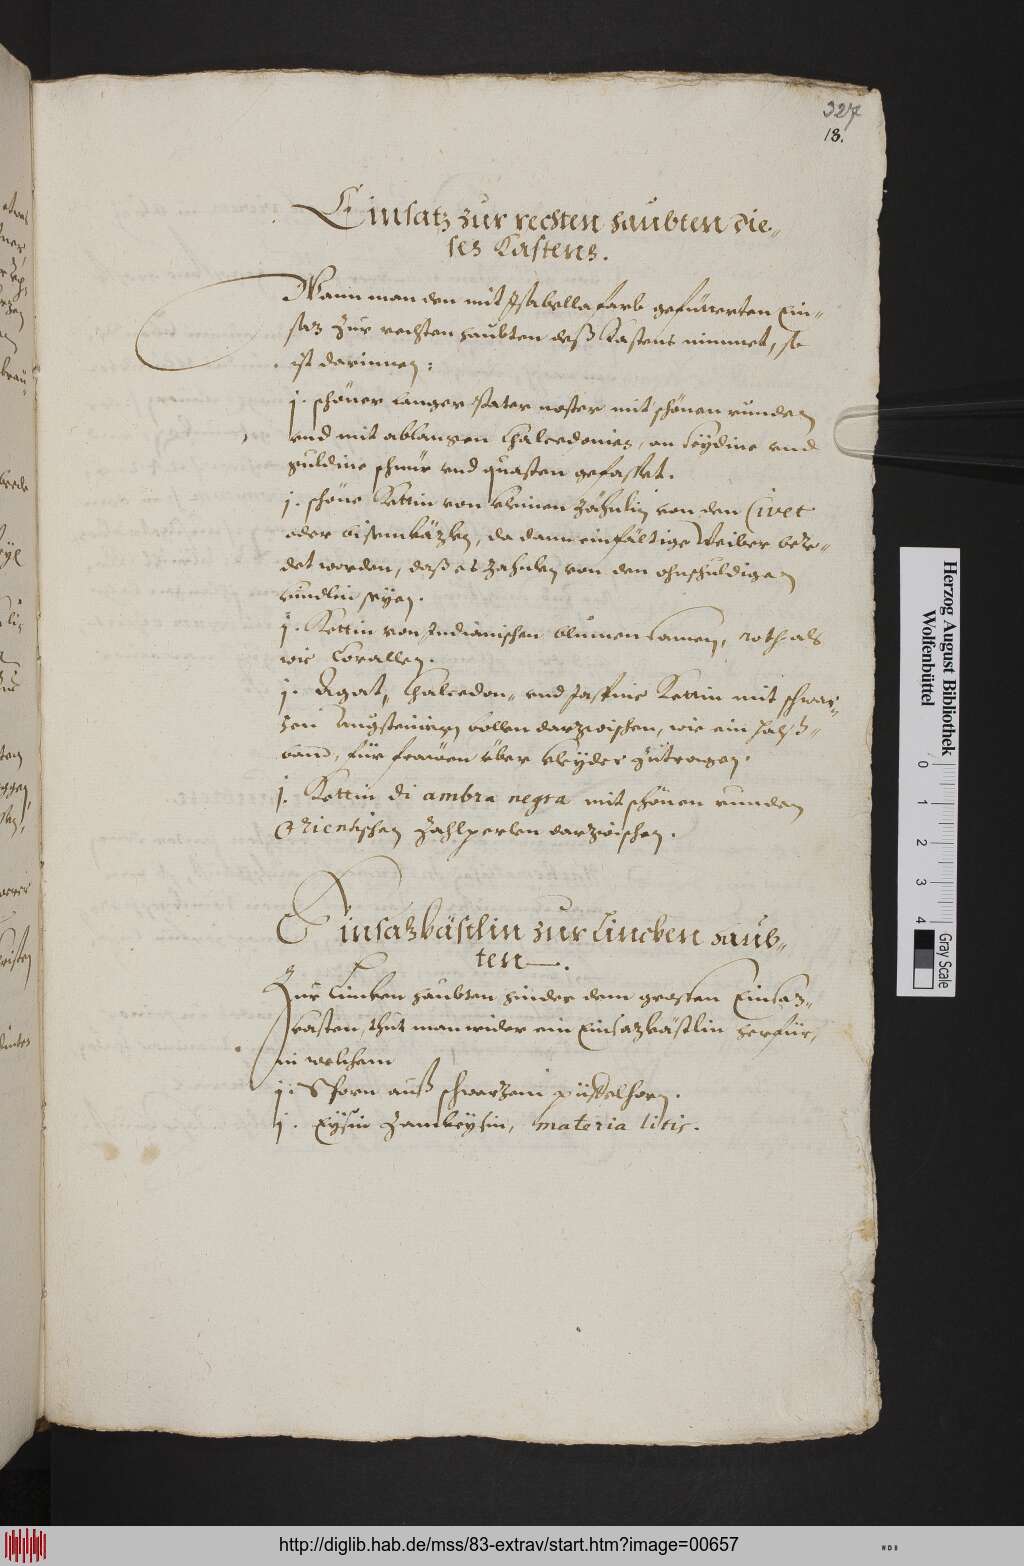 327
18.
Einsatz zur rechten haubten die„
ses Castens.
Wann man den mit Isabella farb gefüeterten Ein„
saz zur rechten haubten deß Kastens nimmet, so
ist darinnen:
j. schöner langer Pater noster mit schönen runden
vnd mit ablangen Chalcedonien, an seydine vnd
guldine schnür vnd quasten gefasset.
j. schöne Kettin von kleinen Zähnlin von den Civet
oder bisemkäzlen, da dann einfältige Weiber bere„
det worden, daß es zähnlen von den ohnschuldigen
kindlin seyen.
j. Kettin von Indianischen blumen samen, roth als
wie Corallen.
j. Agat„ Chalcedon„ vnd Jaspine Kettin mit schwar„
zen augsteininen bollen darzwischen, wie ein halß„
band, für frawen über kleyder zutragen.
j. Kettin di ambra negra mit schönen runden
Orientischen Zahlperlen darzwischen.
Einsatzkästlin zur Lincken haub„
ten.
Zur Linken haubten hinder dem grossen Einsaz„
kasten, thut man wider ein Einsazkästlin herfür,
in welchem
j. Sporn auß schwarzem püffelhorn.
j. Eysin Zambeysin, materia litis.
Herzog August Bibliothek
Wolfenbüttel
0 1 2 3 4
Gray Scale
http://diglib.hab.de/mss/83-extrav/start.htm?image=00657